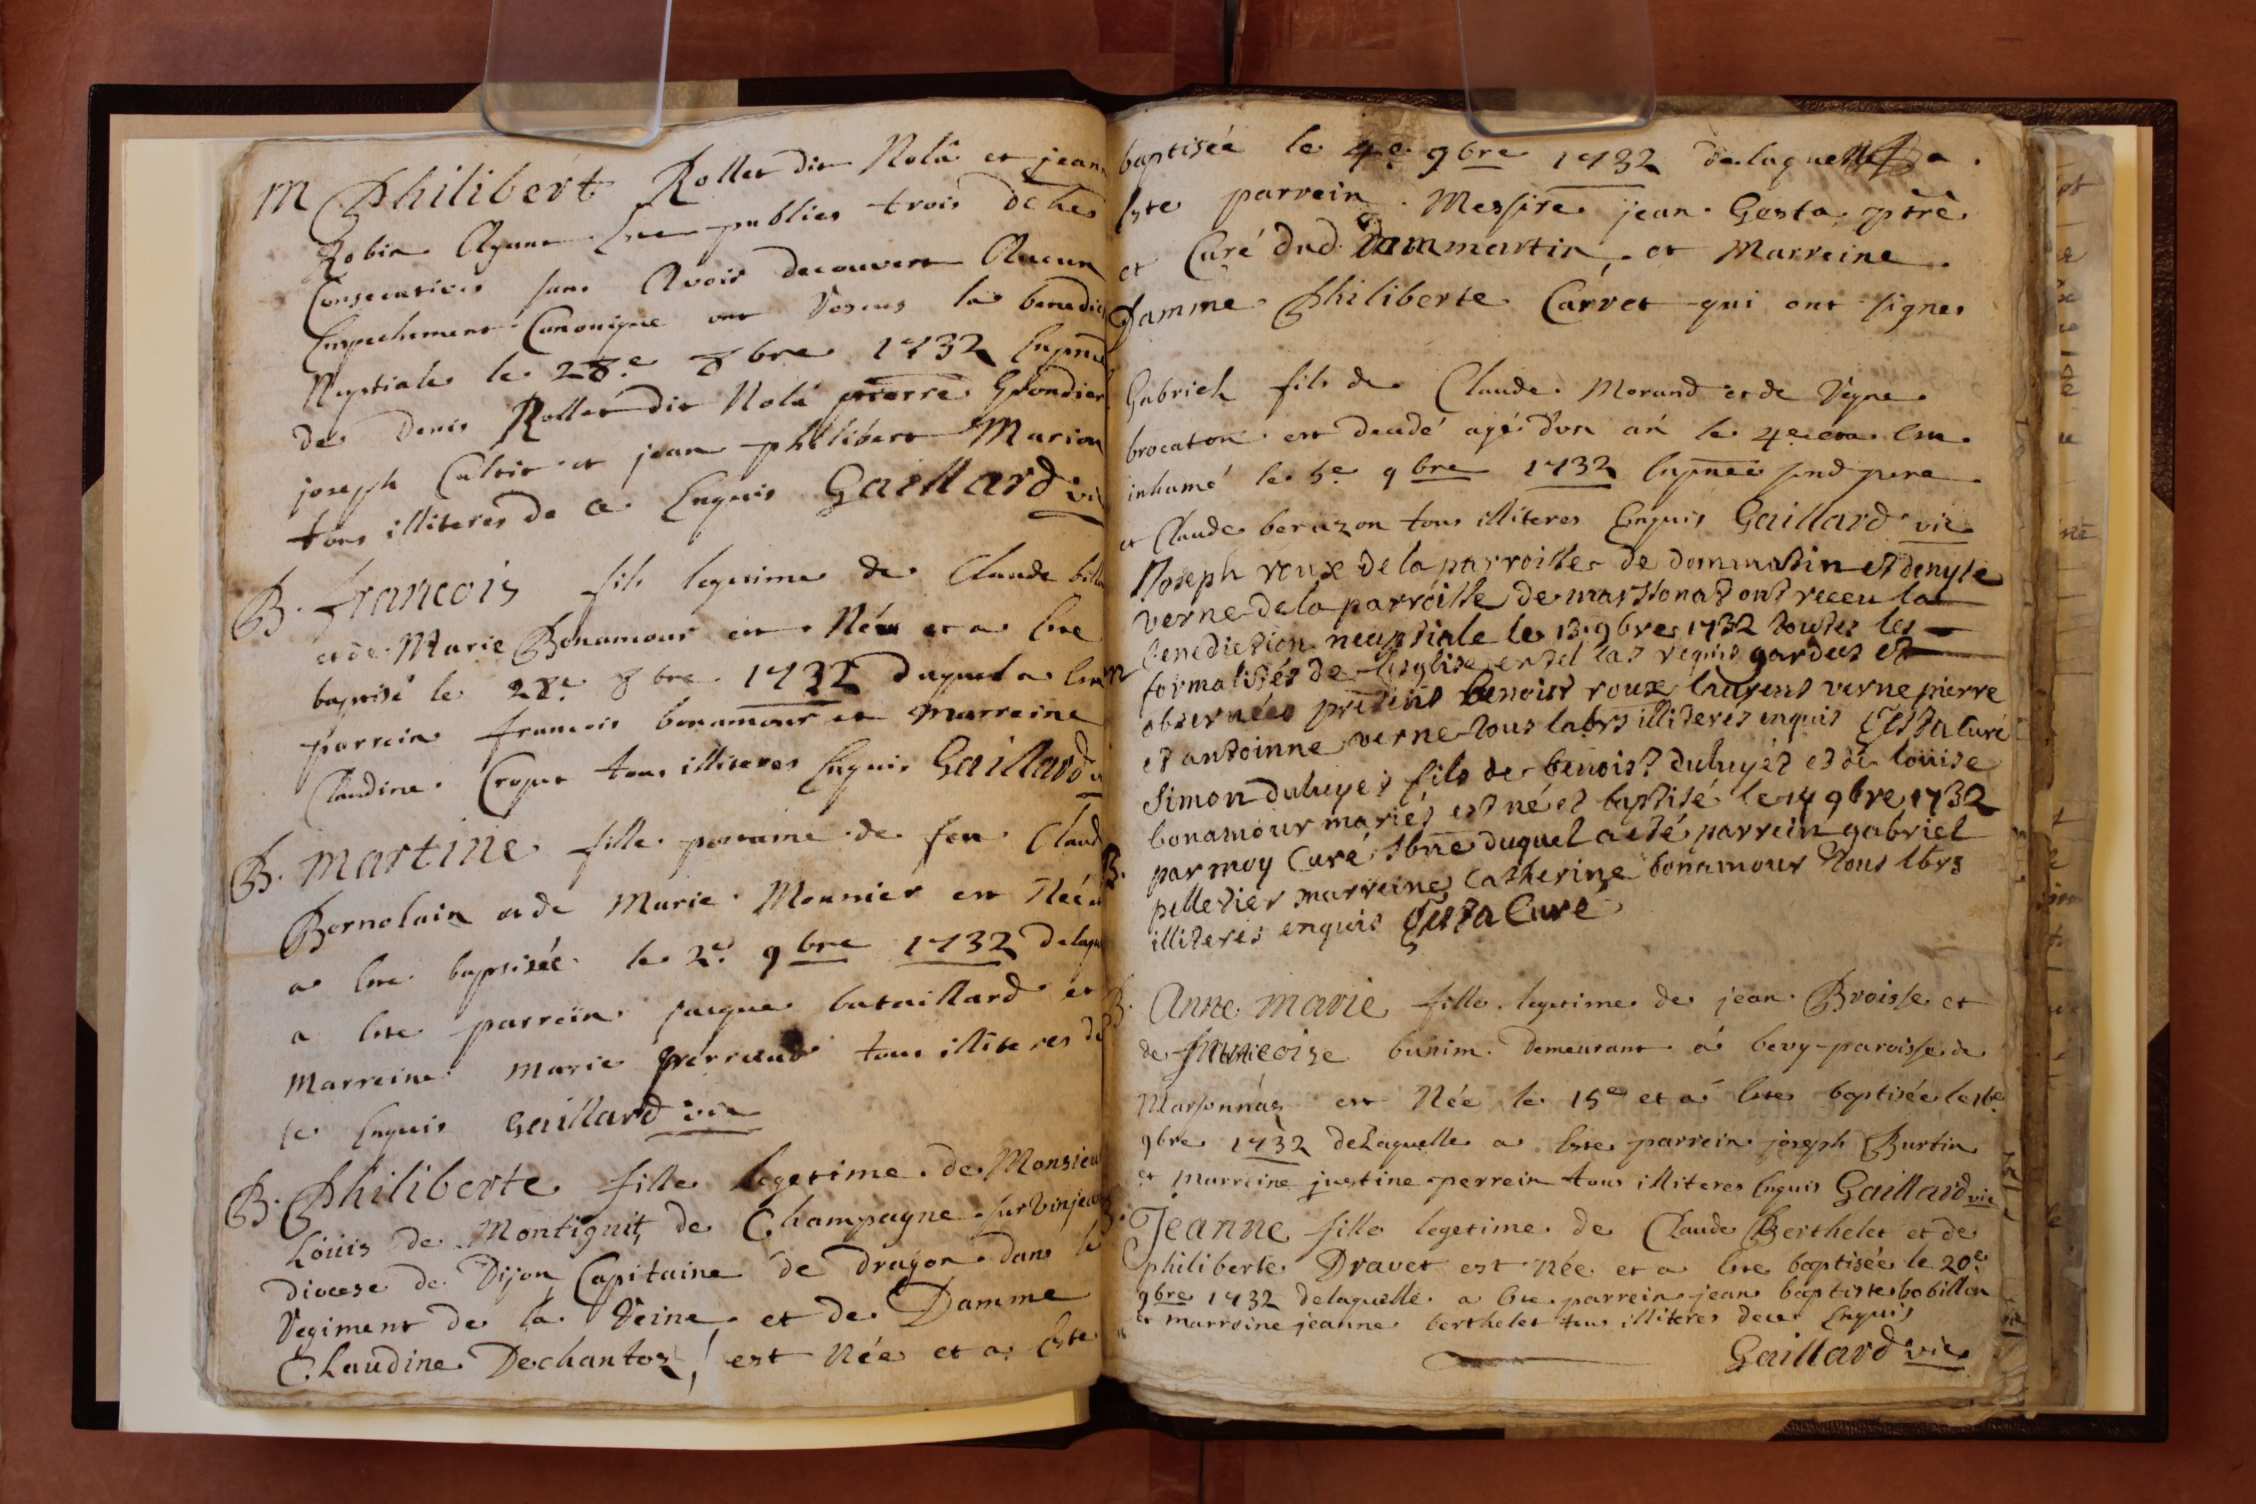 M Philibert Rollet dit Nola et jean
Robin Ayant Este publies trois dehes
Consecutives sans Avoir decouvert Aucun
Empechement Canonique ont Receus la benedic
Nuptiale le 28.e 8bre 1732 Enpnce
de denis Rollet dit Nola pierre Grondier
joseph et jean philibert Marion
tous illiteres de ce Enquis Gaillard vic
B. francois fils legitime de Claude
et de Marie Bonamour est Née et a Este
baptisé le 28.e 8bre 1732 duquel a Este
parrein francois bonamour et marreine
Claudine Croput tous illiteres Enquis Gaillard v
B. Martine fille de feu Claud
Bernolain et de Marie Monnier est Née
a Este baptisée le 2.e 9bre 1732 delaqu
a Este parrein jaque bataillard et
Marreine Marie perraud tous illiteres de
ce Enquis Gaillard vic
B. Philiberte fille legetime de Monsieu
Loüis de Montignit de Champagne sur Vinjean
diocese de Dijon Capitaine de dragon dans le
Regiment de la Reine et de Damme
Claudine Dechantos, est Née et a Este
baptisée le 4.e 9bre 1732 delaquelle a
Este parrein Messire jean Gesta ptrê
et Curé dud. Dammartin, et Marreine
Damme Philiberte Carvet qui ont signes
Gabriel fils de Claude Morand et de Regne
brocaton est decedé agé d'un án le 4.e et a Este
inhumé le 5.e 9bre 1732 Enpnce sond pere
et Claude berazon tous illiteres Enquis Gaillard vic
Joseph roux de la parroisse de dommatin et denyse
verne de la parroisse de marssonat ont receu la
benediction neuptiale le 13 9bre 1732 toutes les
m formalités de l'esglise en tel cas requis gardees et
observées presens benoist roux laurens verne pierre
et antoinne verne tous labrs illiteres enquis Gesta Curé
Simon duluyet fils de benoist duluyet et de loüise
bonamour mariés est né et baptisé le 14 9bre 1732
B. par moy Curé sbne duquel a esté parrein gabriel
pelletier marreine Catherine bonamour tous lbrs
illiteres enquis Gesta Curé
B. Anne Marie fille legetime de jean Broisse et
de francoise bunim demeurant a bevy paroisse de
Marsonnas est Née le 15e et a Este baptisée le 16e
9bre 1732 delaquelle a Este parrein joseph Burtin
et marreine justine perrein tous illiteres Enquis Gaillard vic
B. Jeanne fille legetime de Claude Berthelet et de
philiberte Dravet est née et a Este baptisée le 20e
9bre 1732 delaquelle a Este parrein jean baptiste bobillon
et marreine jeanne berthelet tous illiteres dece Enquis
Gaillard vic